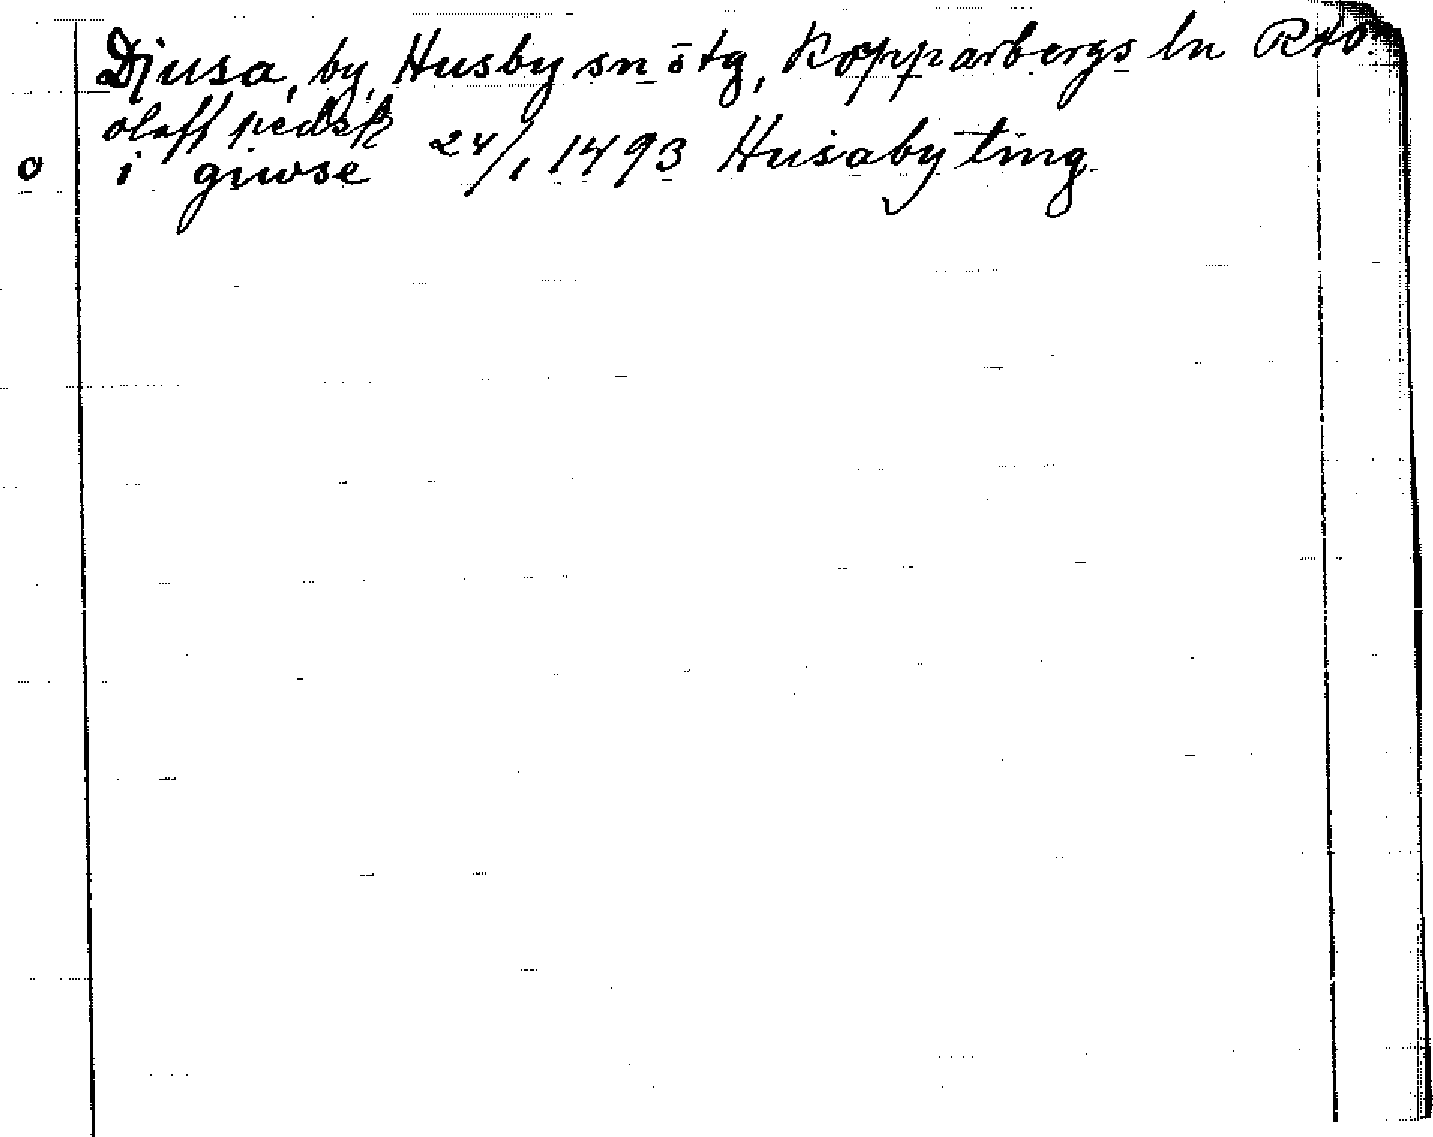 Djusa, by, Husby sn ötg, Kopparbergs ln RAO
olaff pedsß
o i giwse 24/1 1493 Husaby ting